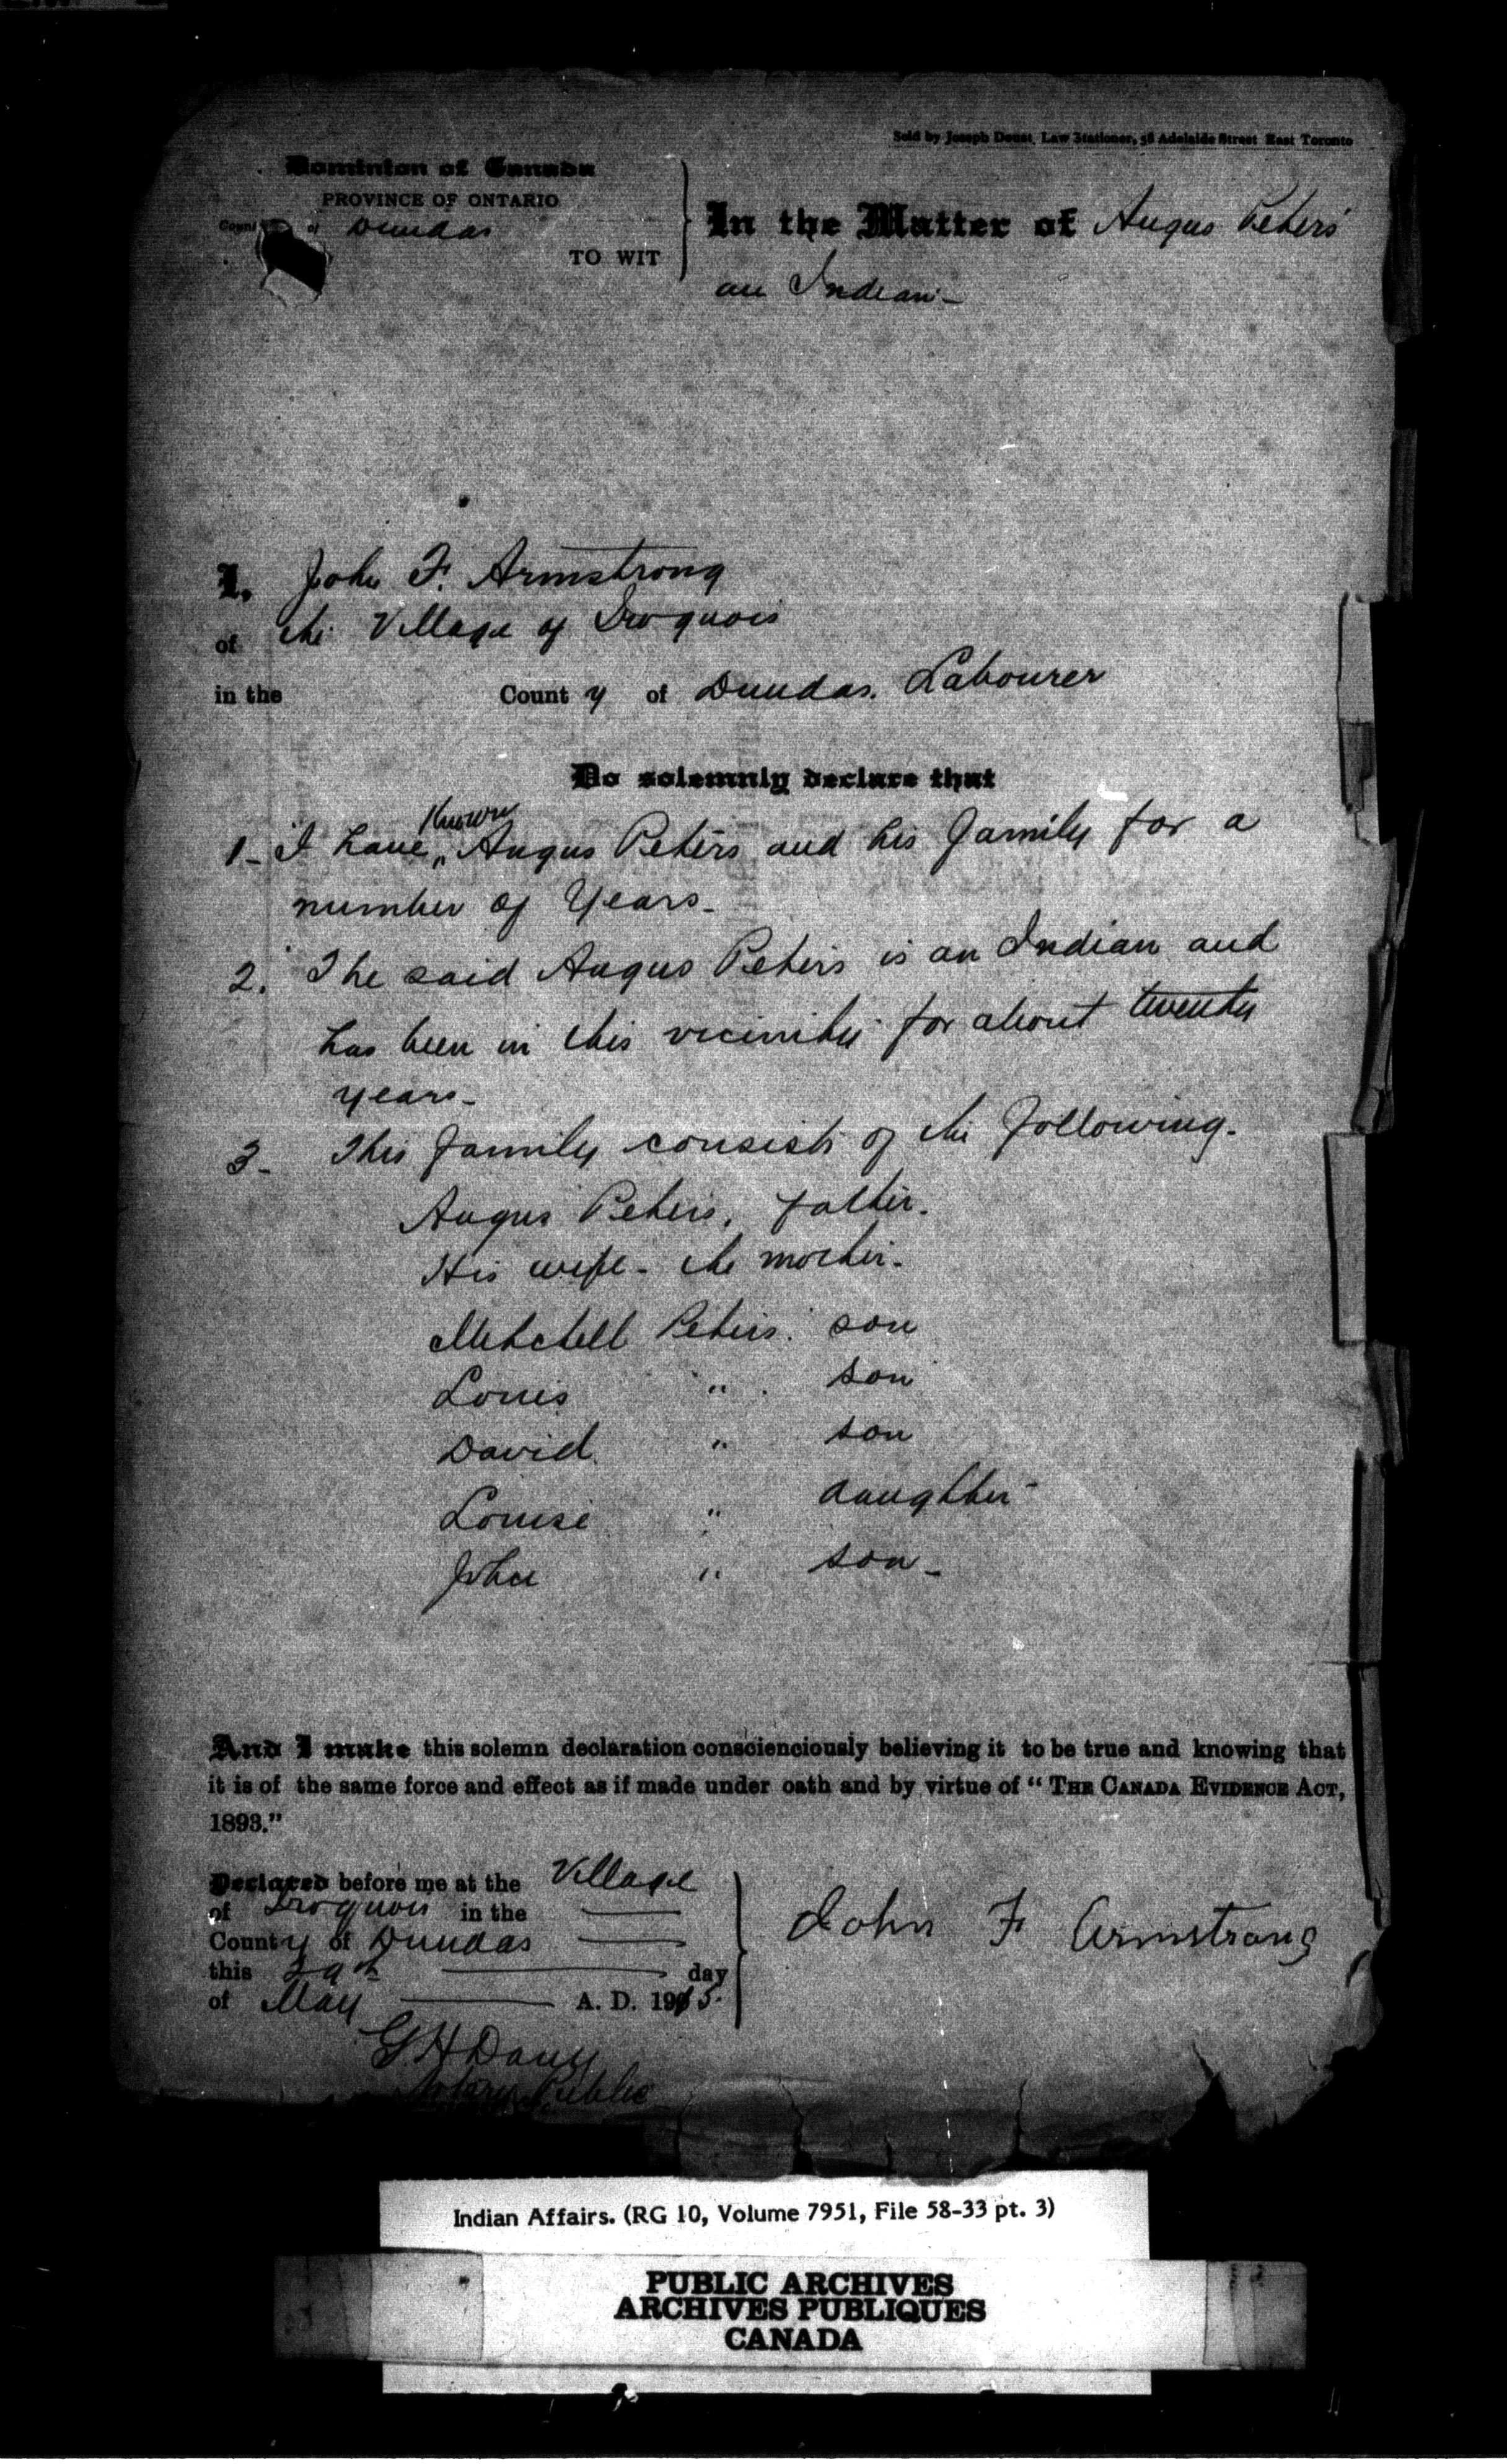 Sold by Joseph Doust, Law Stationer, 58 Adelaide Street East Toronto
Dominion of Canada
PROVINCE OF ONTARIO
County of Dundas
TO WIT
In the Matter of Angus Peters
an Indian -
I, John F. Armstrong
of the Village of Iroquois
in the County of Dundas. Labourer
Do solemnly declare that
1 - I have known Angus Peters and his family for a
number of years -
2. The said Angus Peters is an Indian and
has been in this vicinity for about twenty
years -
3 - This family consists of the following.
Angus Peters, father.
His wife - the mother -
Mitchell Peters. son
Louis " son
David " son
Louise " daughter -
John " son -
And I make this solemn declaration conscienciously believing it to be true and knowing that
it is of the same force and effect as if made under oath and by virtue of "THE CANADA EVIDENCE ACT,
1893."
Declared before me at the Village
of Iroquois in the
County of Dundas
this 29th day
of May A. D. 1915.
John F Armstrong
G H Davy
Notary Public
Indian Affairs. (RG 10, Volume 7951, File 58-33 pt. 3)
PUBLIC ARCHIVES
ARCHIVES PUBLIQUES
CANADA